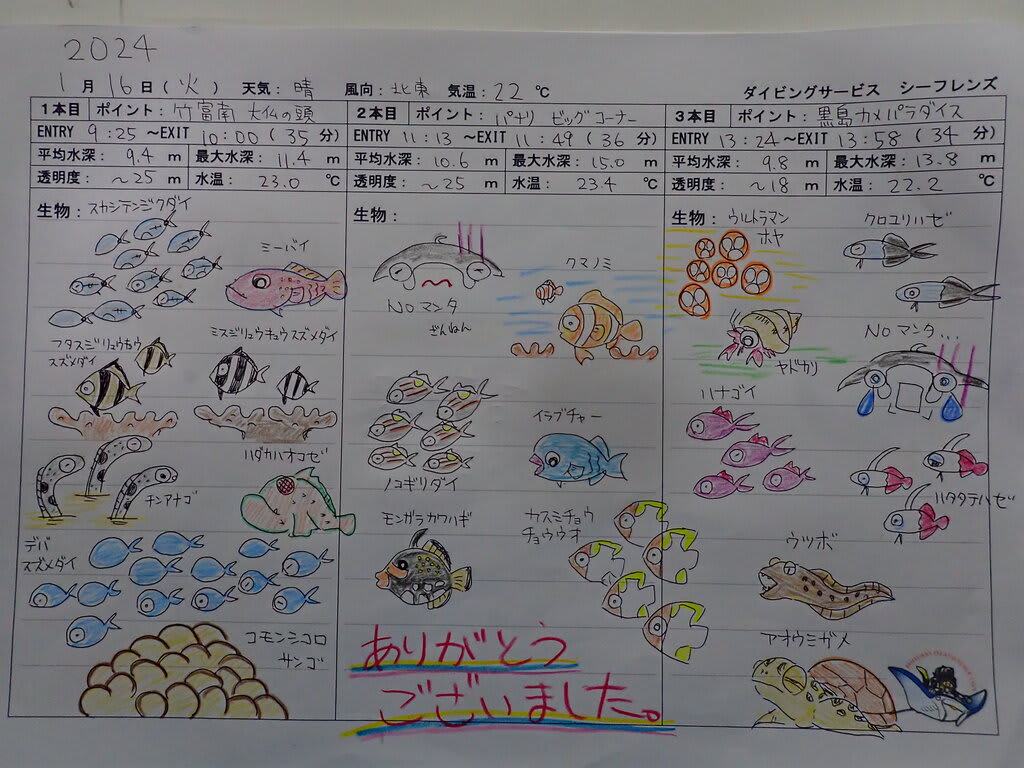 2024
1月16日(火) 天気：晴 風向：北東 気温：22℃ ダイビングサービス シーフレンズ
1本目 ポイント：竹富南 大仏の頭
ENTRY 9:25～EXIT 10:00(35分)
平均水深：9.4m 最大水深：11.4m
透明度：～25m 水温：23.0℃
生物：スカシテンジクダイ
ミーバイ
フタスジリュウキュウ
スズメダイ
ミスジリュウキュウスズメダイ
ハダカハオコゼ
チンアナゴ
デバ
スズメダイ
コモンシコロ
サンゴ
2本目 ポイント：パナリ ビッグコーナー
ENTRY 11:13～EXIT 11:49(36分)
平均水深：10.6m 最大水深：15.0m
透明度：～25m 水温：23.4℃
生物：
クマノミ
NOマンタ
ざんねん
イラブチャー
ノコギリダイ
モンガラカワハギ
カスミチョウ
チョウウオ
ありがとう
ございました。
3本目 ポイント：黒島カメパラダイス
ENTRY 13:24～EXIT 13:58(34分)
平均水深：9.8m 最大水深：13.8m
透明度：～18m 水温：22.2℃
生物：ウルトラマン
ホヤ
クロユリハゼ
NOマンタ...
ヤドカリ
ハナゴイ
ハタタテハゼ
ウツボ
アオウミガメ